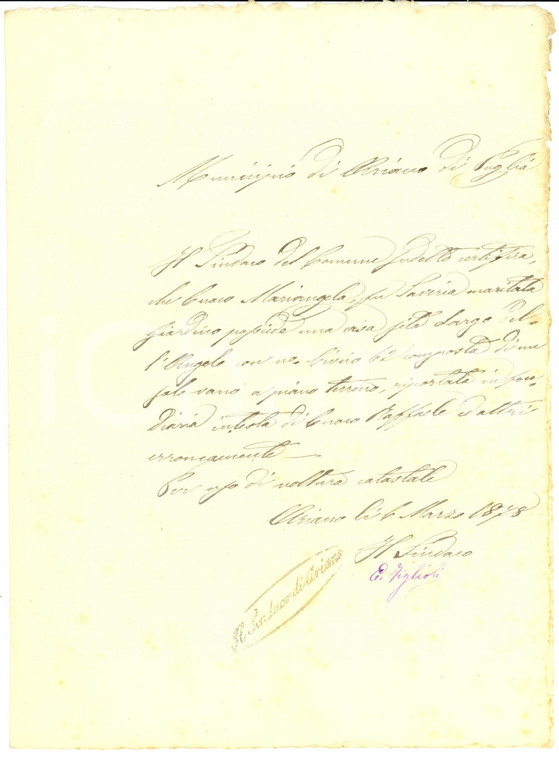 Municipio di Ariano di Puglia
Il Sindaco del Comune sudetto certifica,
che Cuoco Mariangela, fu Saveria maritata
Giardino possiede una casa sita Largo del=
l'Angelo con no. Civico 62 composta di un
solo vano a piano terreno, riportata in fon=
diaria intesta di Cuoco Raffaele ed altri
erroneamente
Per uso di voltura catastale
Ariano li 6 Marzo 1878
Il Sindaco
E. Viglioli
Il Sindaco di Ariano